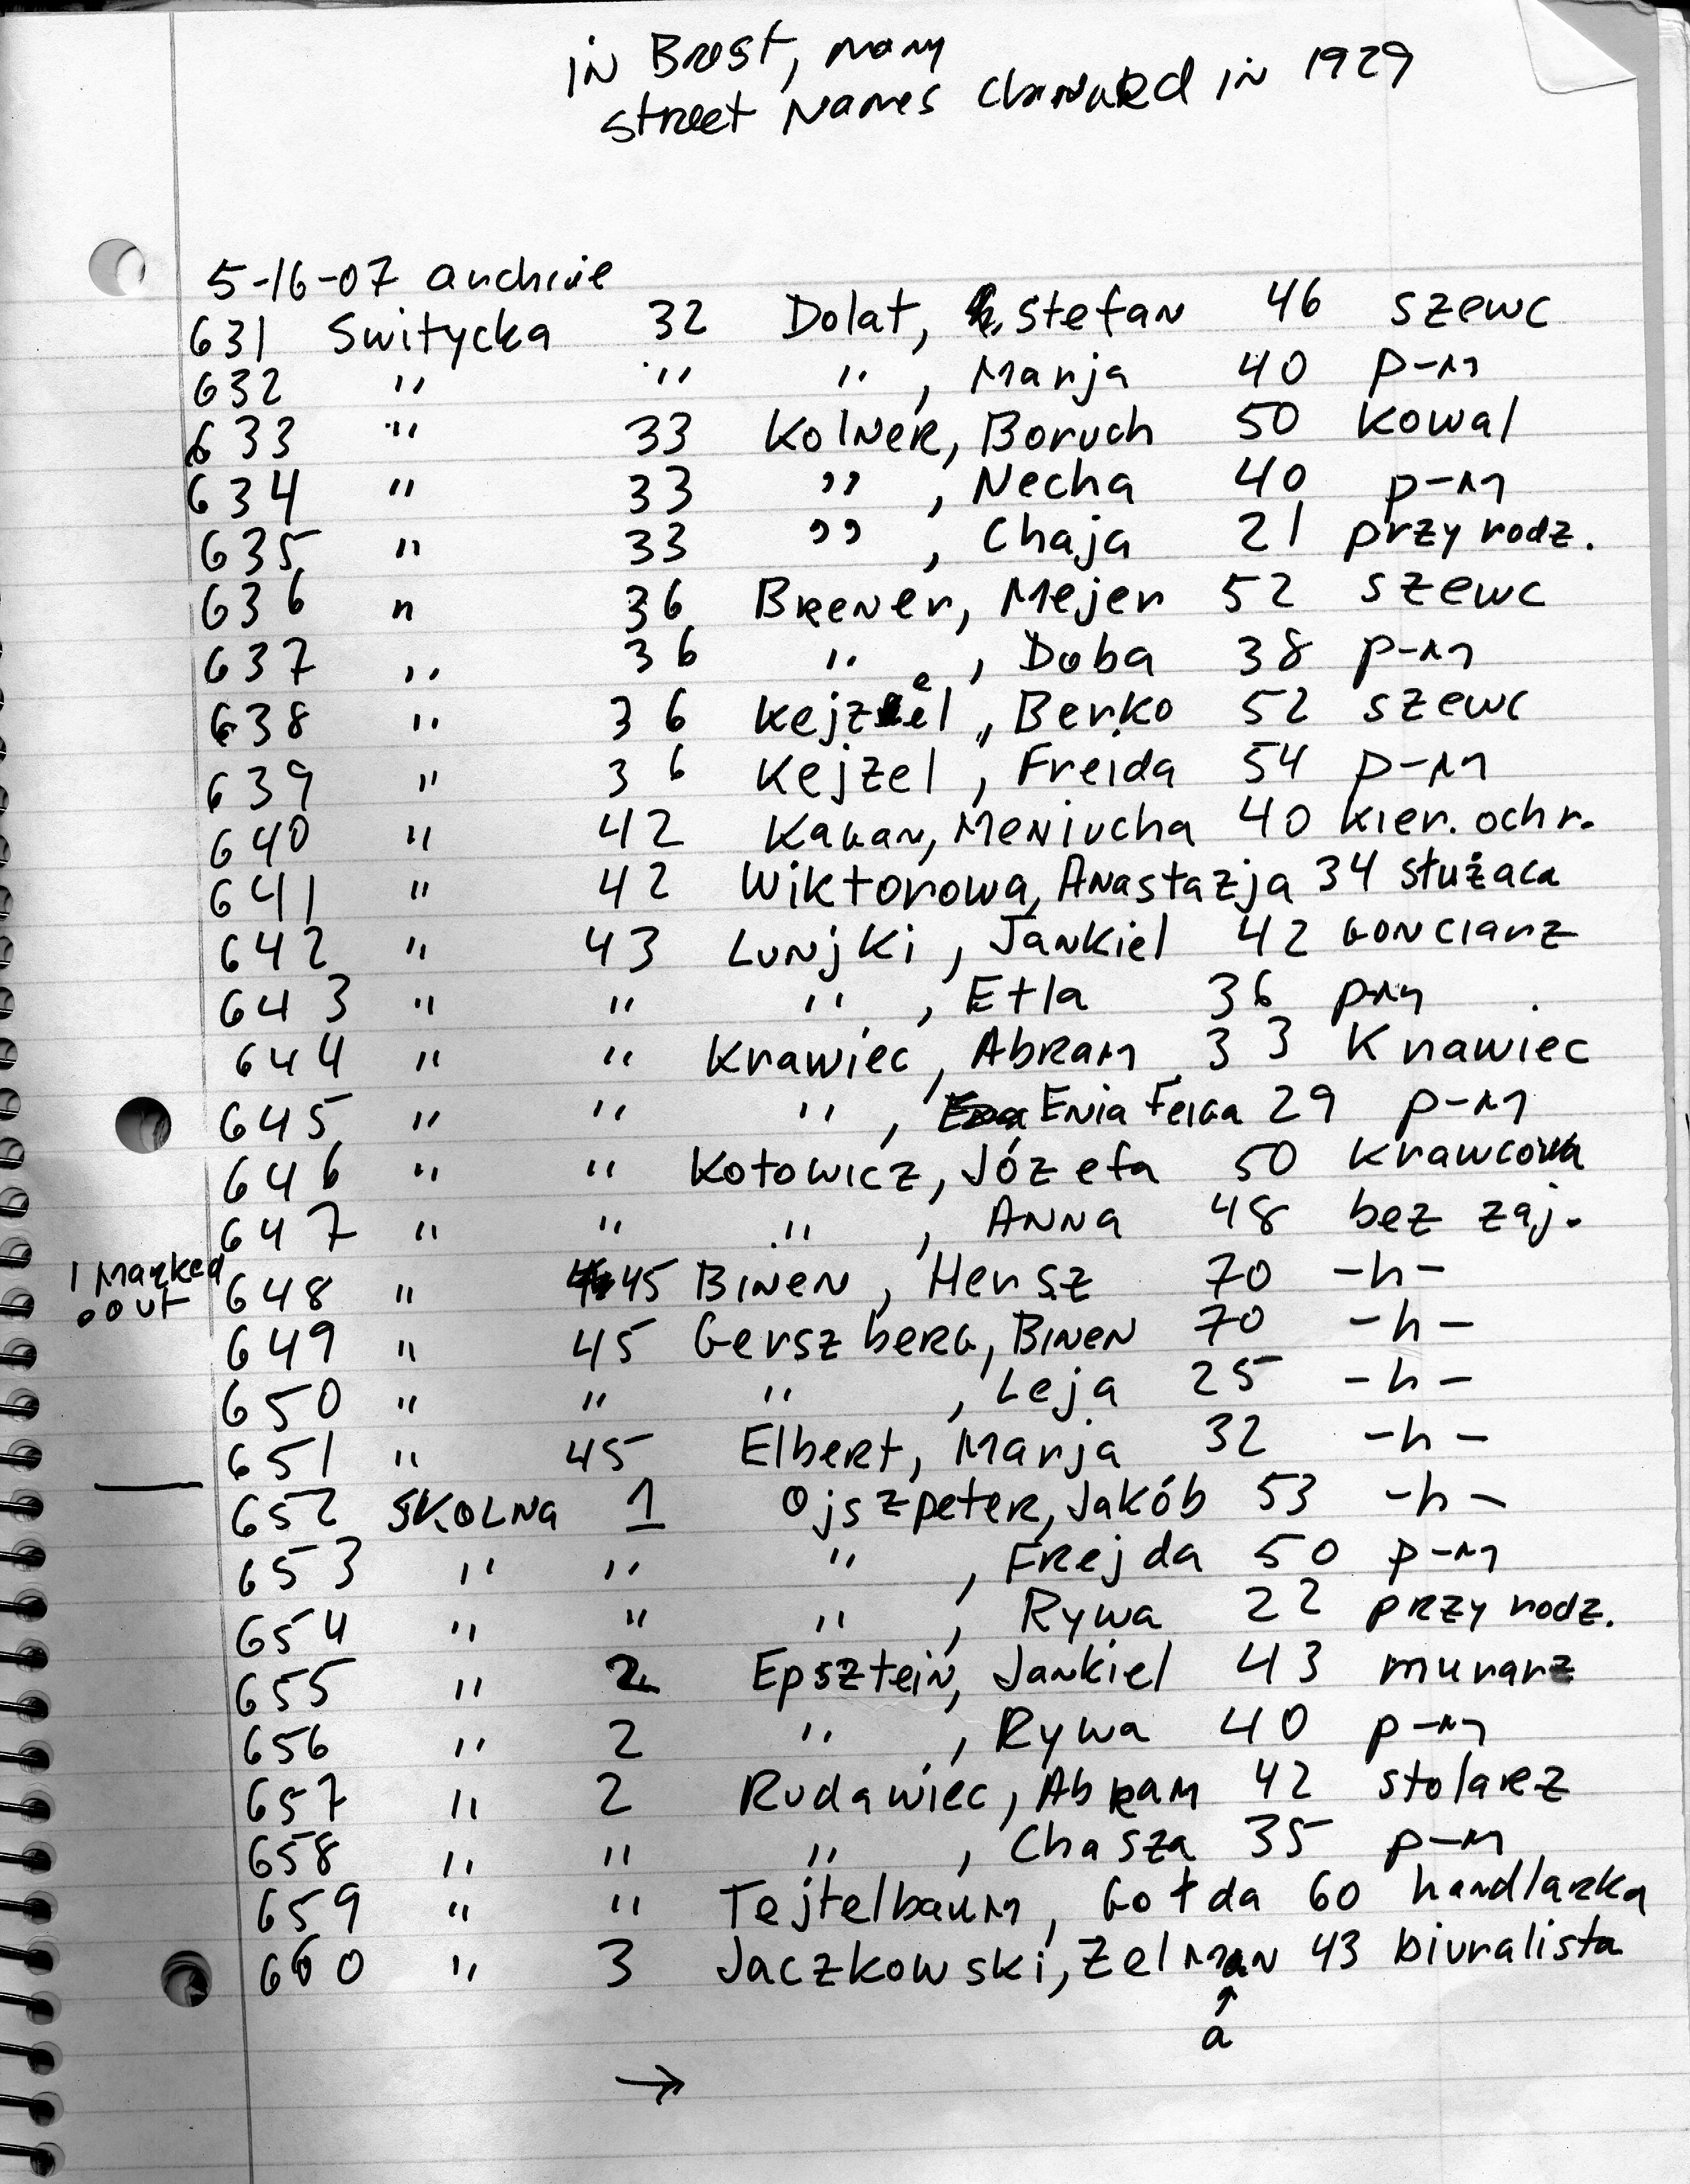 in Brest, many
street names changed in 1929
5-16-07 archive
631 Switycka 32 Dolat, Stefan 46 szewc
632 " " " , Marja 40 p-m
633 " 33 Kolner, Boruch 50 kowal
634 " 33 " , Necha 40 p-m
635 " 33 " , Chaja 21 przy rodz.
636 " 36 Brener, Mejer 52 szewc
637 " 36 " , Doba 38 p-m
638 " 36 Kejzel, Berko 52 szewc
639 " 36 Kejzel, Freida 54 p-m
640 " 42 Kagan, Meniucha 40 kier. ochr.
641 " 42 Wiktorowa, Anastazja 34 służaca
642 " 43 Lunjki, Jankiel 42 gonciarz
643 " " " , Etla 36 p-m
644 " " Krawiec, Abram 33 Krawiec
645 " " " , Enia Feiga 29 p-m
646 " " Kotowicz, Józefa 50 krawcowa
647 " " " , Anna 48 bez zaj.
1 marked out
648 " 45 Binen, Hersz 70 -h-
649 " 45 Gerszberg, Binen 70 -h-
650 " " " , Leja 25 -h-
651 " 45 Elbert, Marja 32 -h-
652 SKOLNA 1 Ojszpeter, Jakób 53 -h-
653 " " " , Frejda 50 p-m
654 " " " , Rywa 22 przy rodz.
655 " 2 Epsztein, Jankiel 43 murarz
656 " 2 " , Rywa 40 p-m
657 " 2 Rudawiec, Abram 42 stolarz
658 " " " , Chasza 35 p-m
659 " " Tejtelbaum, Gołda 60 handlarka
660 " 3 Jaczkowski, Zelman 43 biuralista
↑
a
→